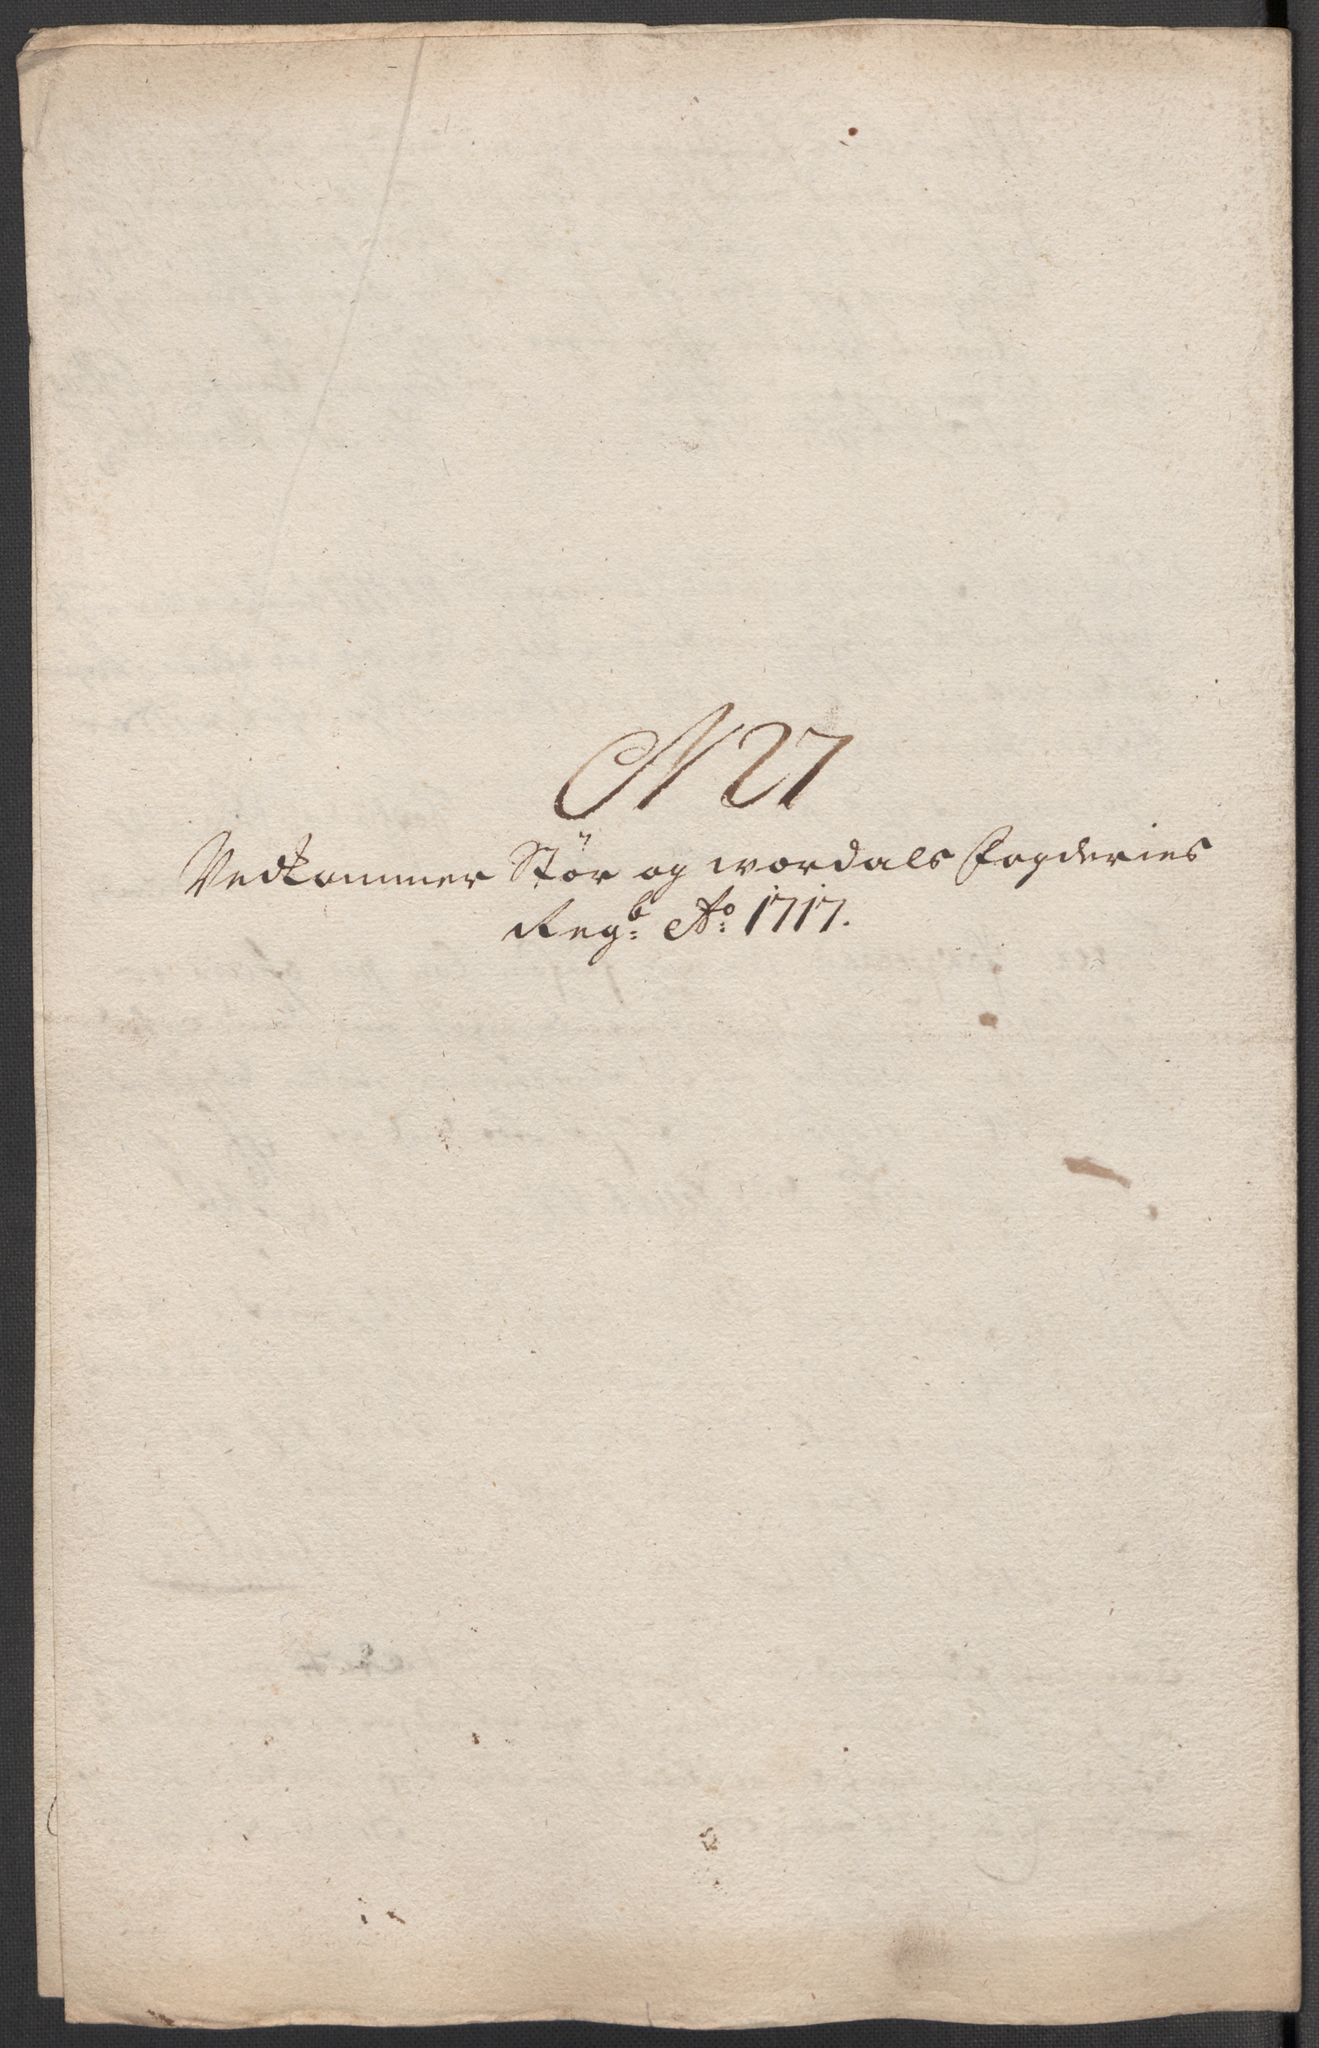 N 27
Vedkommer Stør og wordals Fogderies
Regb: Ao: 1717.